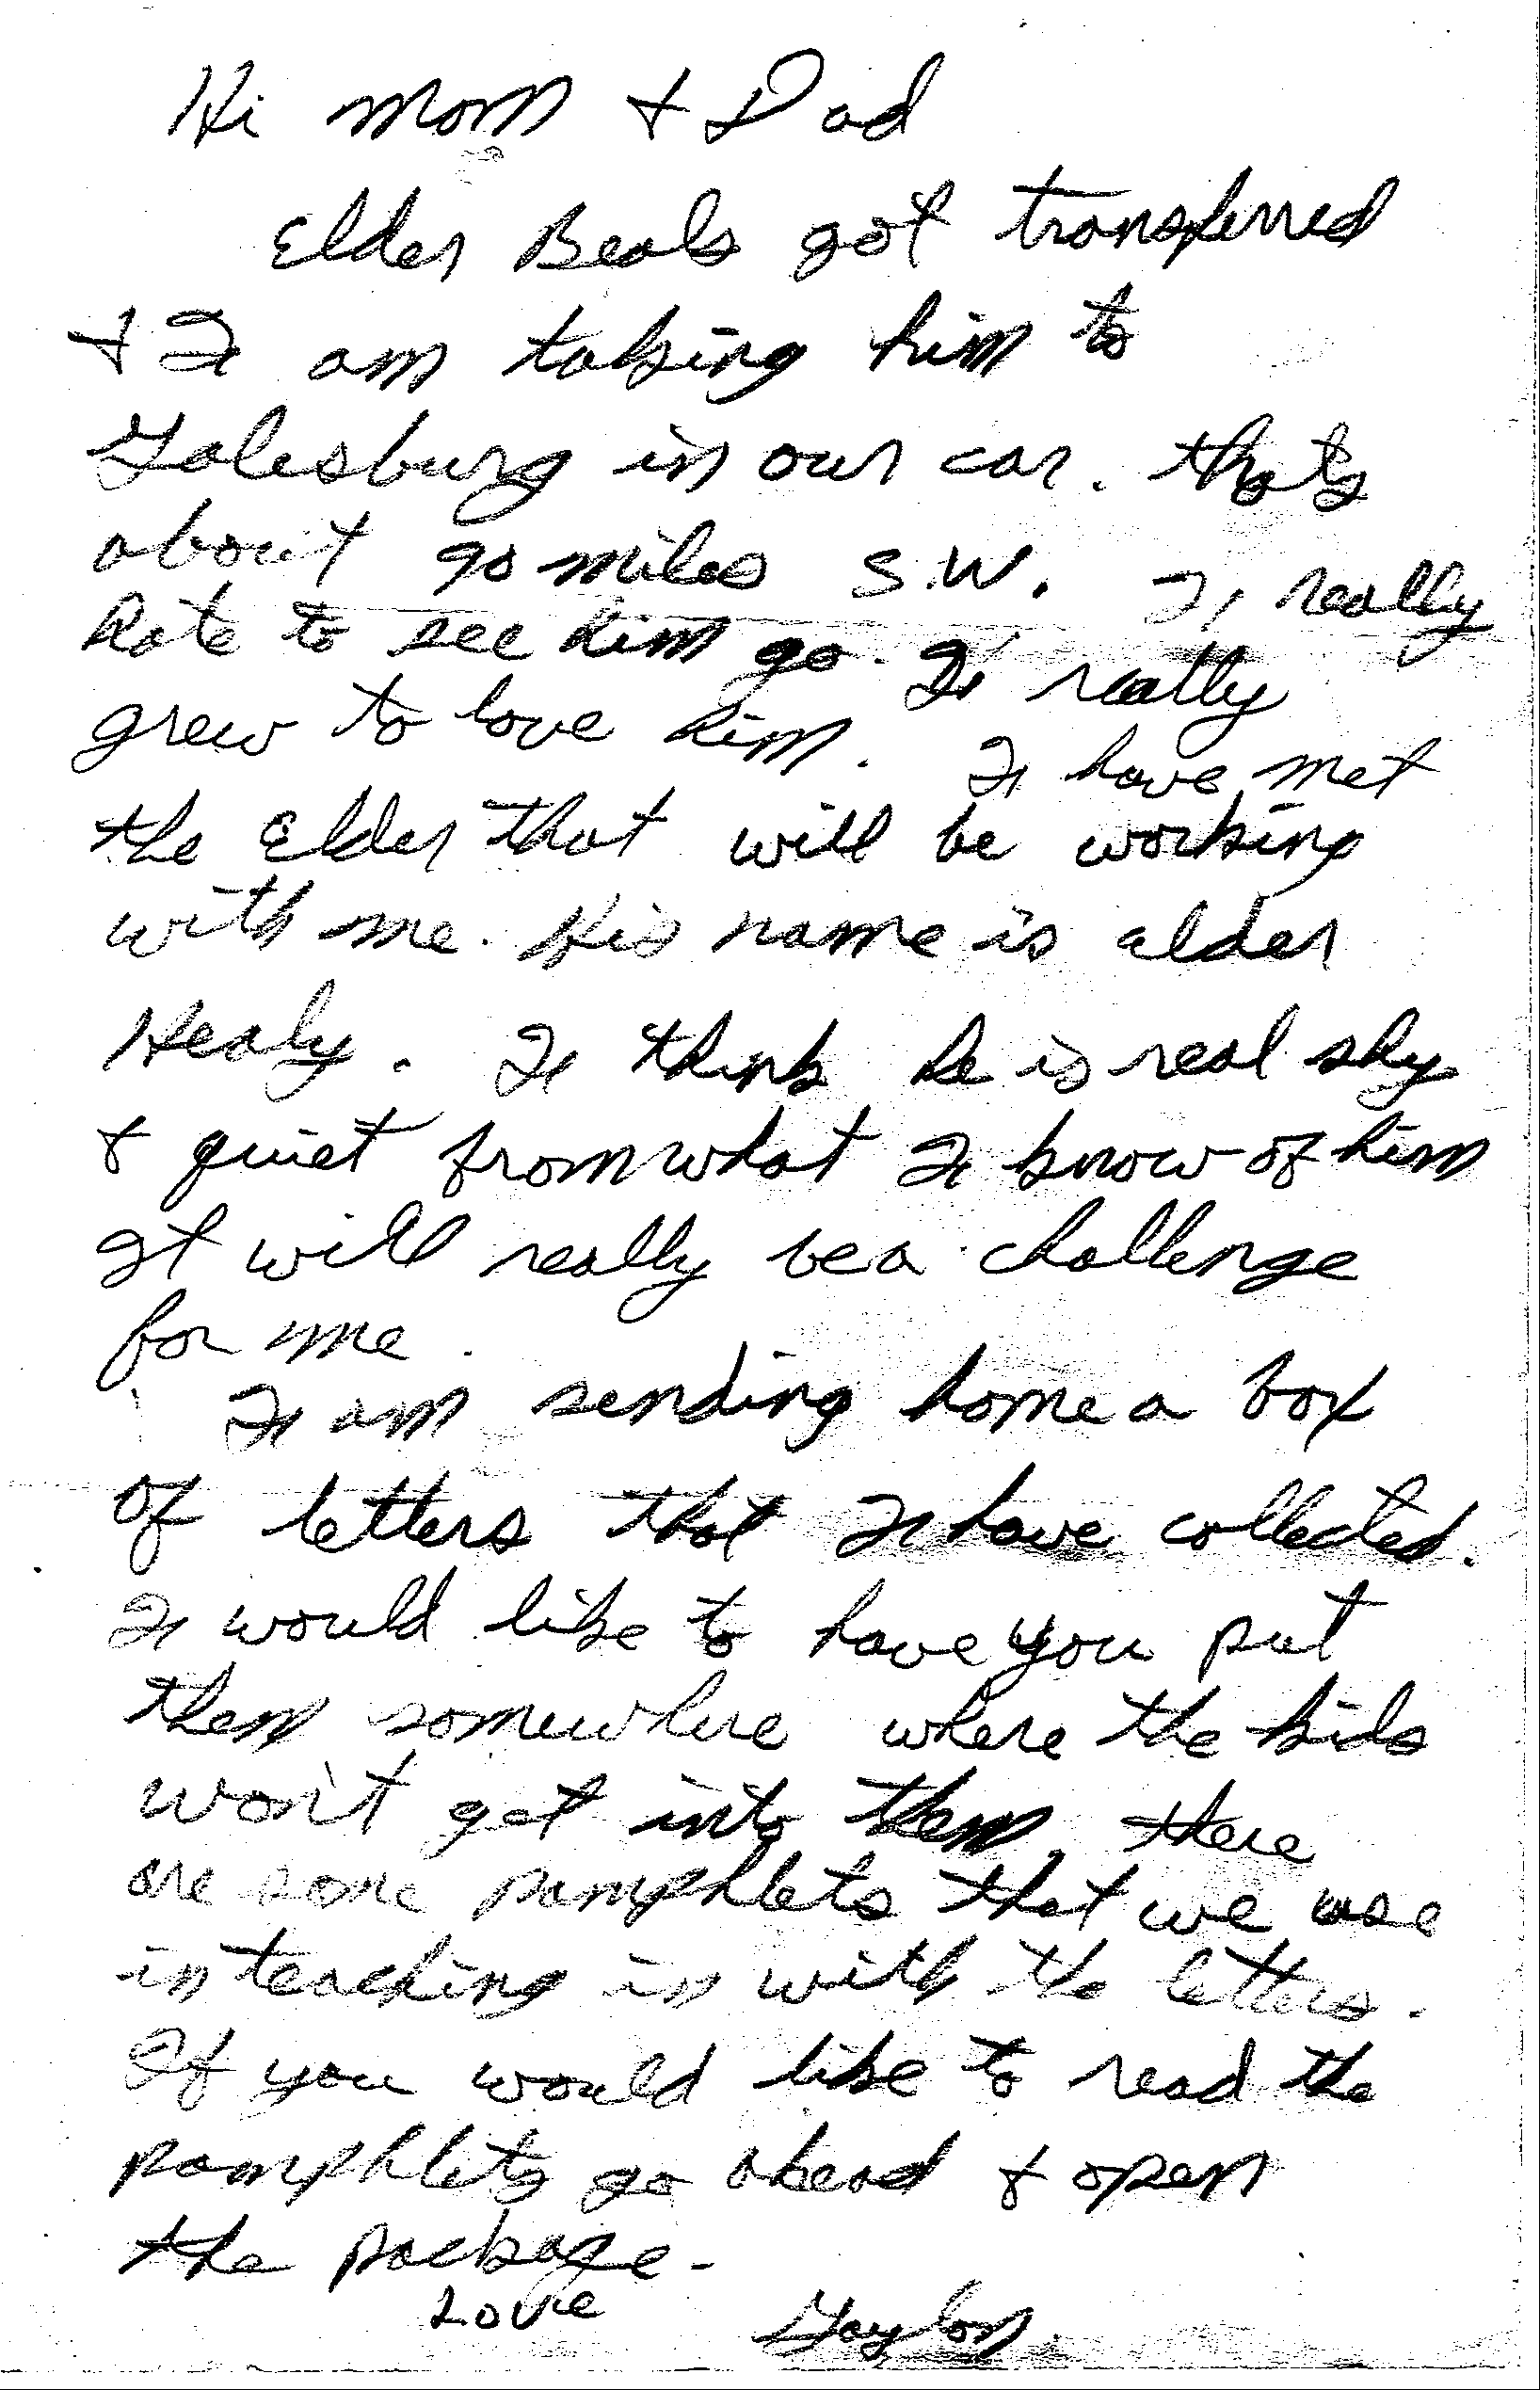 Hi Mom + Dad
Elder Beals got transferred
+ I am taking him to
Galesburg in our car. thats
about 90 miles S.W. I really
hate to see him go. I really
grew to love him. I have met
the Elder that will be working
with me. His name is elder
Healy. I think he is real shy
+ quiet from what I know of him
It will really be a challenge
for me.
I am sending home a box
of letters that I have collected.
I would like to have you put
them somewhere where the kids
won't get into them. there
are some pamphlets that we use
in teaching in with the letters.
If you would like to read the
pamphlets go ahead + open
the package.
Love Gaylon